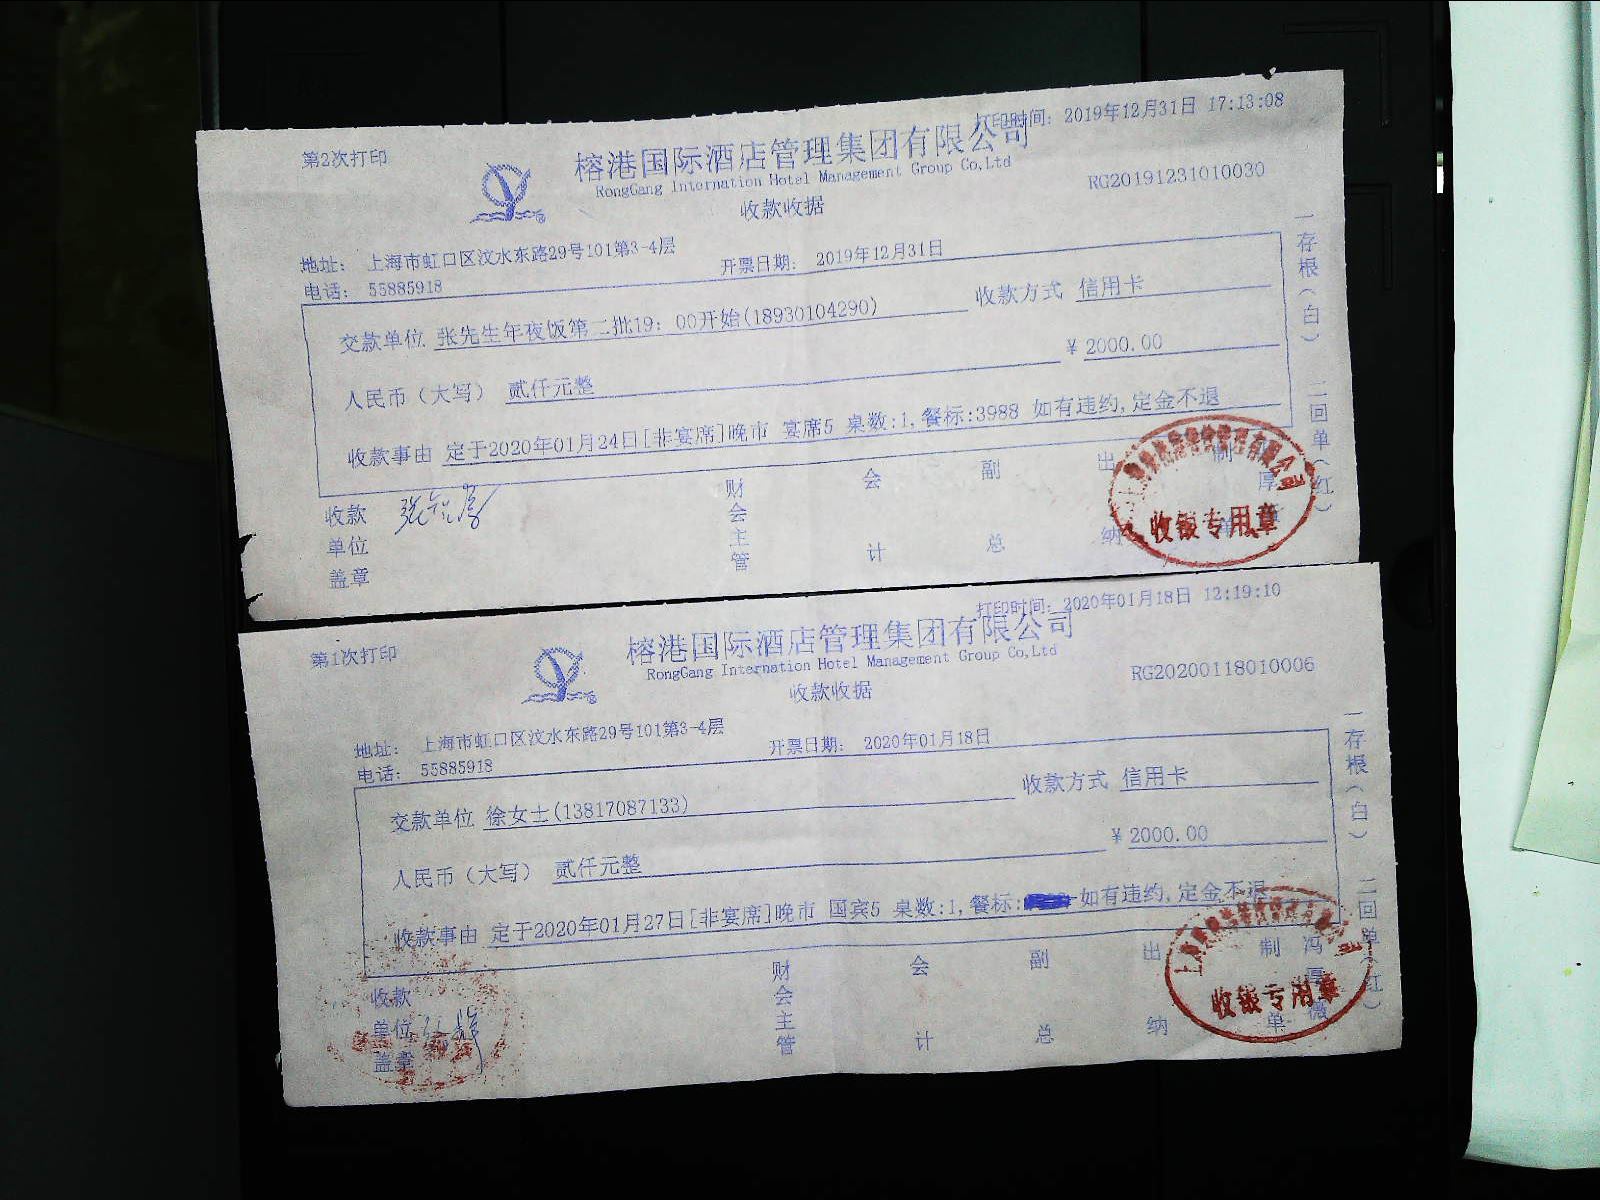 第2次打印
打印时间: 2019年12月31日 17:13:08
榕港国际酒店管理集团有限公司
RongGang Internation Hotel Management Group Co,Ltd
RG20191231010030
收款收据
地址: 上海市虹口区汶水东路29号101第3-4层
开票日期: 2019年12月31日
电话: 55885918
交款单位 张先生年夜饭第二批19: 00开始(18930104290)
收款方式 信用卡
人民币(大写) 贰仟元整
¥ 2000.00
收款事由 定于2020年01月24日[非宴席]晚市 宴席5 桌数:1,餐标:3988 如有违约,定金不退
收款单位盖章
财会主管
会计
副总
出纳
制
厚
收银专用章
一存根(白)
二回单(红)
第1次打印
打印时间: 2020年01月18日 12:19:10
榕港国际酒店管理集团有限公司
RongGang Internation Hotel Management Group Co,Ltd
RG20200118010006
收款收据
地址: 上海市虹口区汶水东路29号101第3-4层
开票日期: 2020年01月18日
电话: 55885918
交款单位 徐女士(13817087133)
收款方式 信用卡
人民币(大写) 贰仟元整
¥ 2000.00
收款事由 定于2020年01月27日[非宴席]晚市 国宾5 桌数:1,餐标: 如有违约,定金不退
收款单位盖章
财会主管
会计
副总
出纳
制单
冯厚薇
收银专用章
一存根(白)
二回单(红)